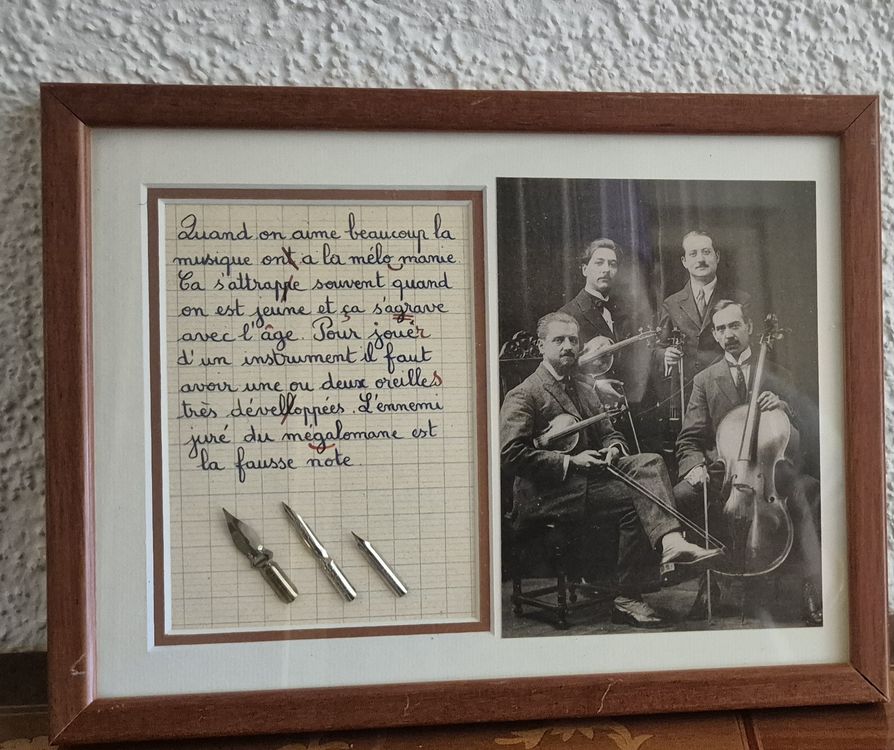 Quand on aime beaucoup la
musique ont a la mélo manie.
Ca s'attrappe souvent quand
on est jeune et ça s'agrave
avec l'âge. Pour jouer
d'un instrument il faut
avoir une ou deux oreilles
très dévelloppées. L'ennemi
juré du mégalomane est
la fausse note.